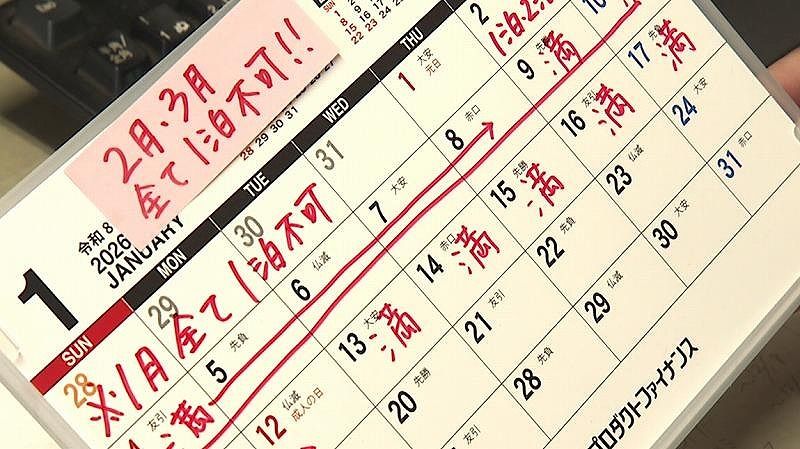 2月、3月
全て1泊不可!!
令和8
2026
JANUARY
1
SUN
MON
TUE
WED
THU
28
29
30
31
1
大安
元日
2
※1月全て1泊不可
満
5
先負
6
仏滅
7
大安
8
赤口
9
先勝
満
10
友引
12
仏滅
成人の日
13
大安
満
14
赤口
満
15
先勝
満
16
友引
満
17
満
20
先勝
21
友引
22
先負
23
仏滅
24
大安
友引
28
先負
29
仏滅
30
大安
31
赤口
プロダクトファイナンス